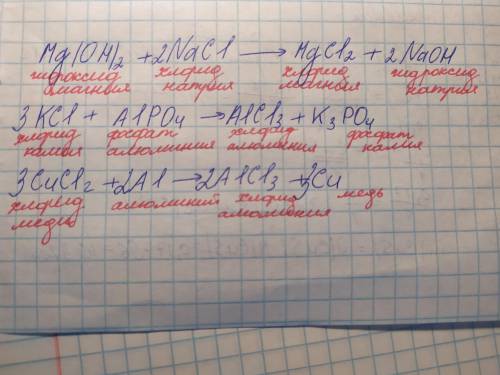 Mg(OH)2 + 2NaCl → MgCl2 + 2NaOH
гидроксид магния хлорид натрия хлорид магния гидроксид натрия
3KCl + AlPO4 → AlCl3 + K3PO4
хлорид калия фосфат алюминия хлорид алюминия фосфат калия
3CuCl2 + 2Al → 2AlCl3 + 3Cu
хлорид меди алюминий хлорид алюминия медь